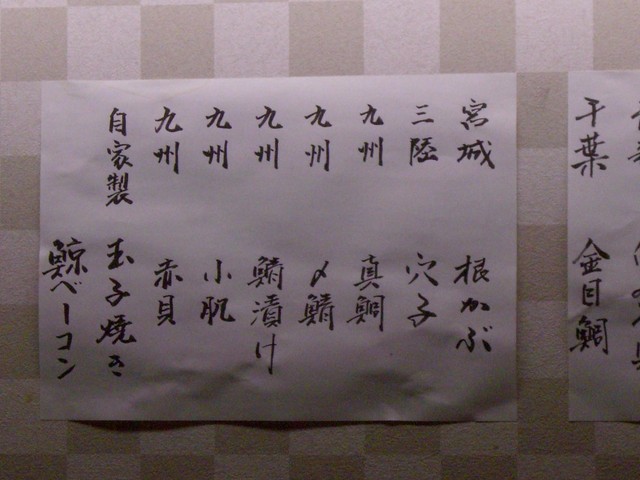 千葉 金目鯛
宮城 根かぶ
三陸 穴子
九州 真鯛
九州 〆鯖
九州 鯖漬け
九州 小肌
九州 赤貝
自家製 玉子焼き
鯨ベーコン